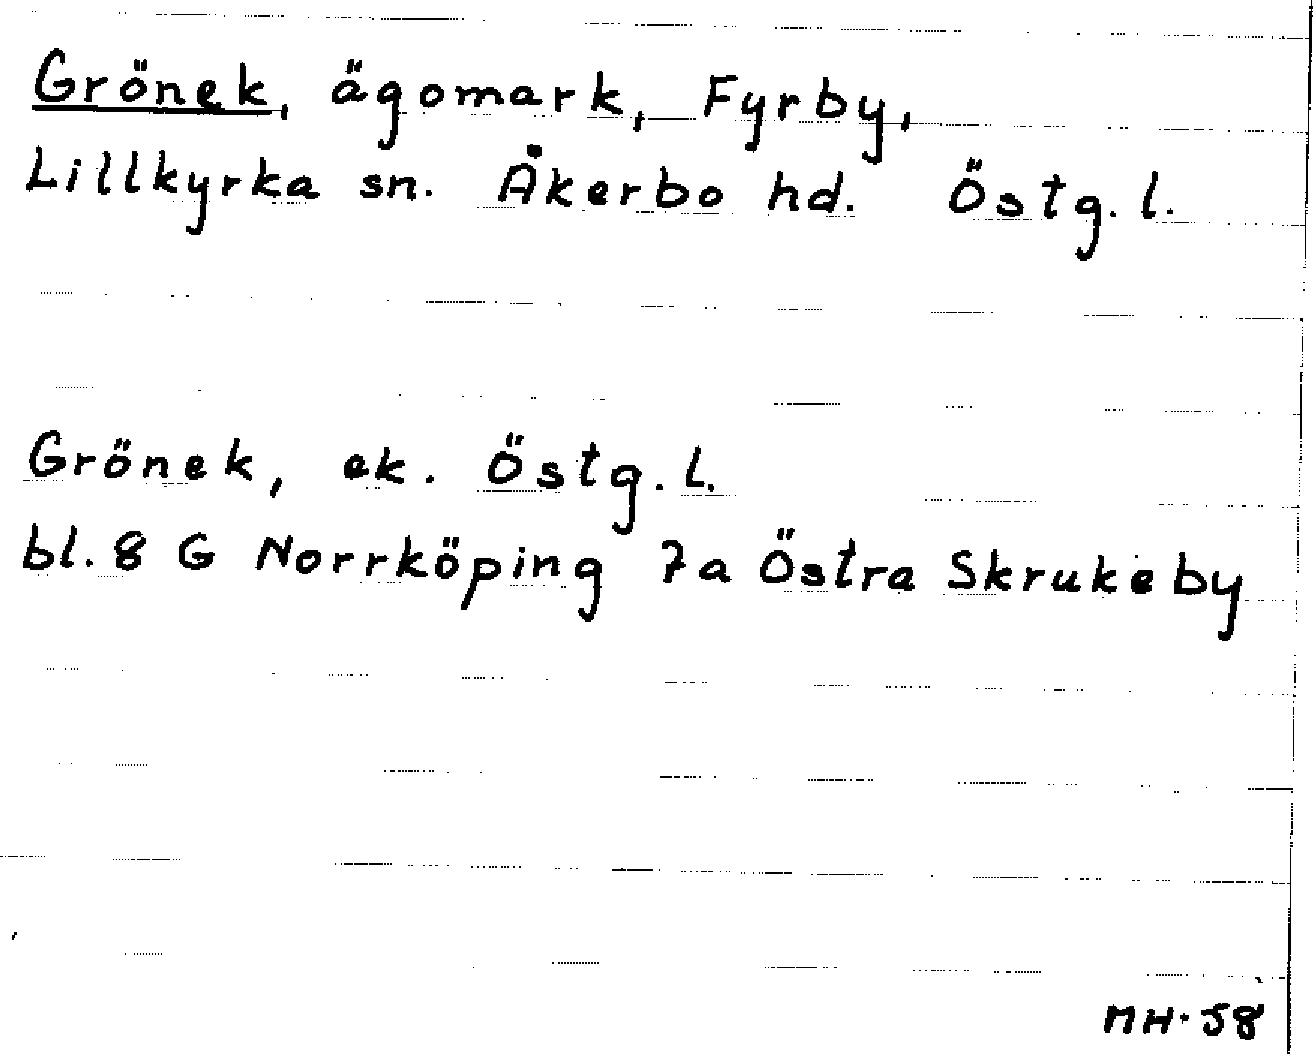 Grönek, ägomark, Fyrby,
Lillkyrka sn. Åkerbo hd. Östg. l.
Grönek, ek. Östg. l.
bl. 8 G Norrköping 7a Östra Skrukeby
MH-58